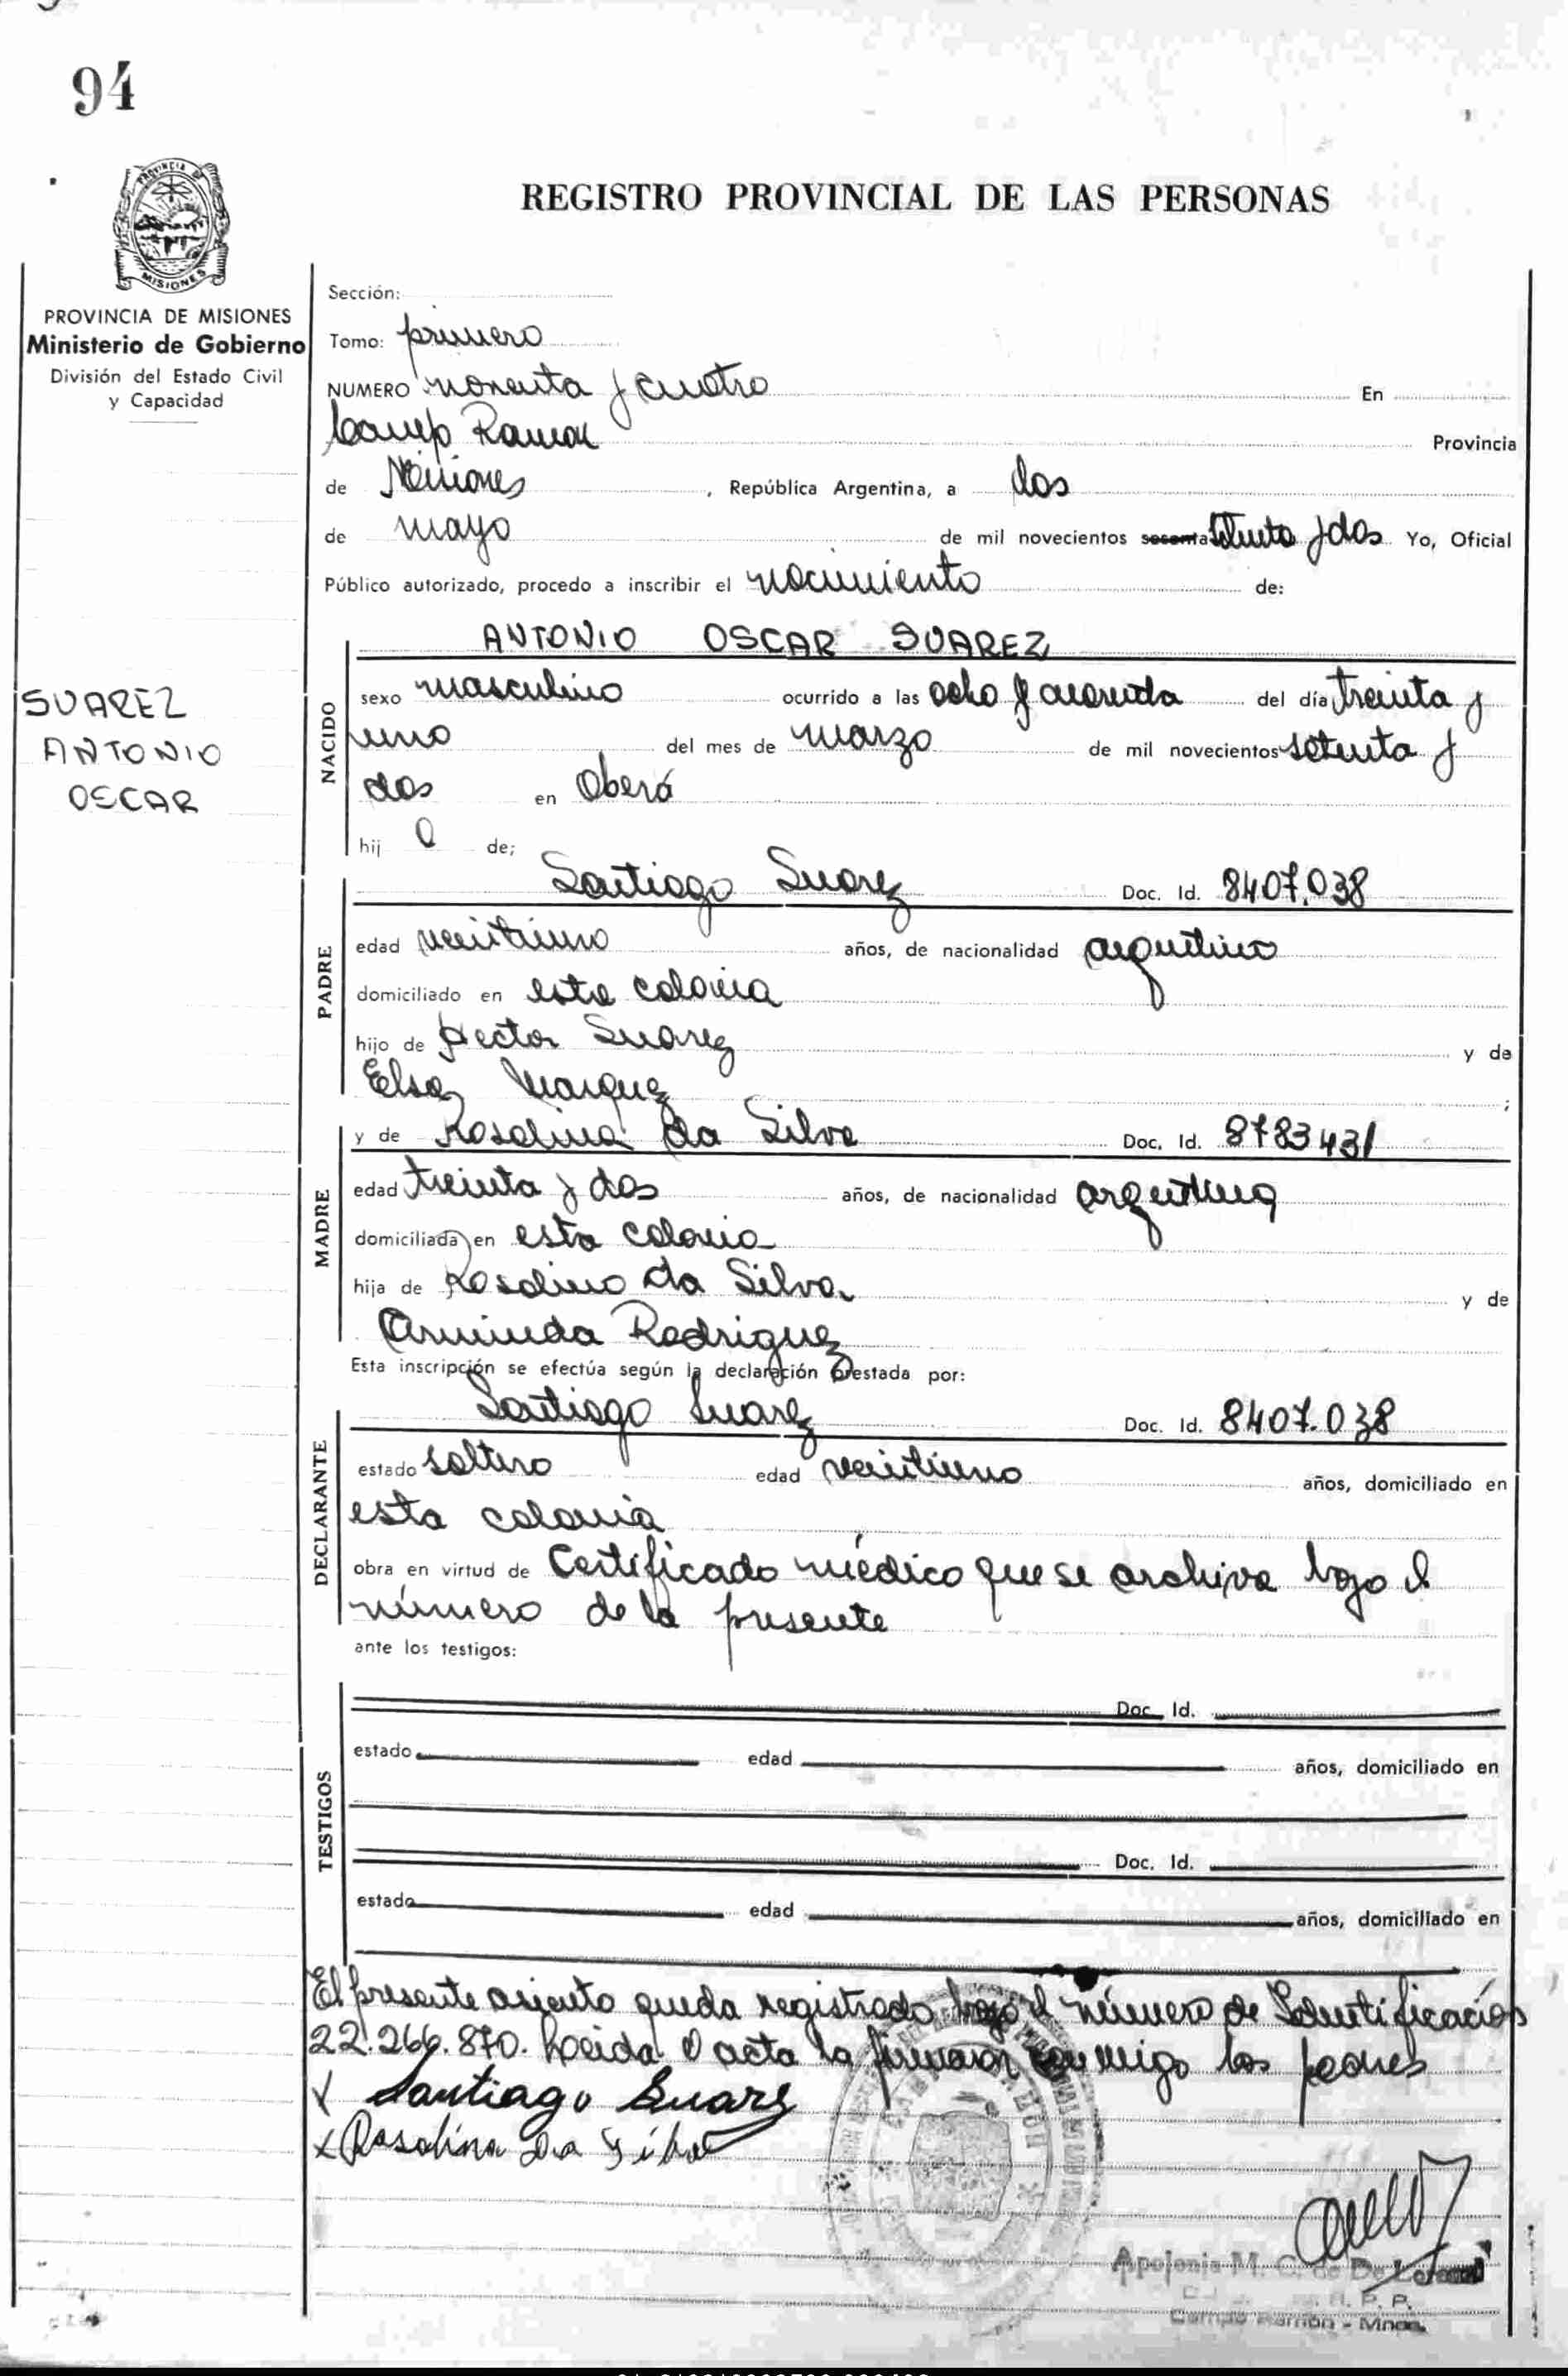 94
PROVINCIA
MISIONES
REGISTRO PROVINCIAL DE LAS PERSONAS
PROVINCIA DE MISIONES
Ministerio de Gobierno
División del Estado Civil
y Capacidad
SUAREZ
ANTONIO
OSCAR
Sección:
Tomo: primero
NUMERO noventa y cuatro En
Campo Ramon Provincia
de Misiones, República Argentina, a dos
de mayo de mil novecientos sesenta setenta y dos Yo, Oficial
Público autorizado, procedo a inscribir el nacimiento de:
ANTONIO OSCAR SUAREZ
NACIDO
sexo masculino ocurrido a las ocho y cuarenta del día treinta y
uno del mes de marzo de mil novecientos setenta y
dos en Oberá
hij o de;
Santiago Suarez Doc. Id. 8407.038
PADRE
edad veintiuno años, de nacionalidad argentino
domiciliado en esta colonia
hijo de Hector Suarez y de
Elsa Marquez ;
y de Rosalina da Silva Doc. Id. 8783431
MADRE
edad treinta y dos años, de nacionalidad argentina
domiciliada en esta colonia
hija de Rosalino da Silva y de
Arminda Rodriguez
Esta inscripción se efectúa según la declaración prestada por:
Santiago Suarez Doc. Id. 8407.038
DECLARANTE
estado soltero edad veintiuno años, domiciliado en
esta colonia
obra en virtud de Certificado médico que se archiva bajo el
número de la presente
ante los testigos:
Doc. Id.
TESTIGOS
estado edad años, domiciliado en
Doc. Id.
estado edad años, domiciliado en
El presente asiento queda registrado bajo el número de Identificación
22.266.870. Leida el acta la firmaron conmigo los padres
X Santiago Suarez
X Rosalina Da Silva
Apolonia M. C. de De
R. P. P.
Campo Ramón - Mnes.